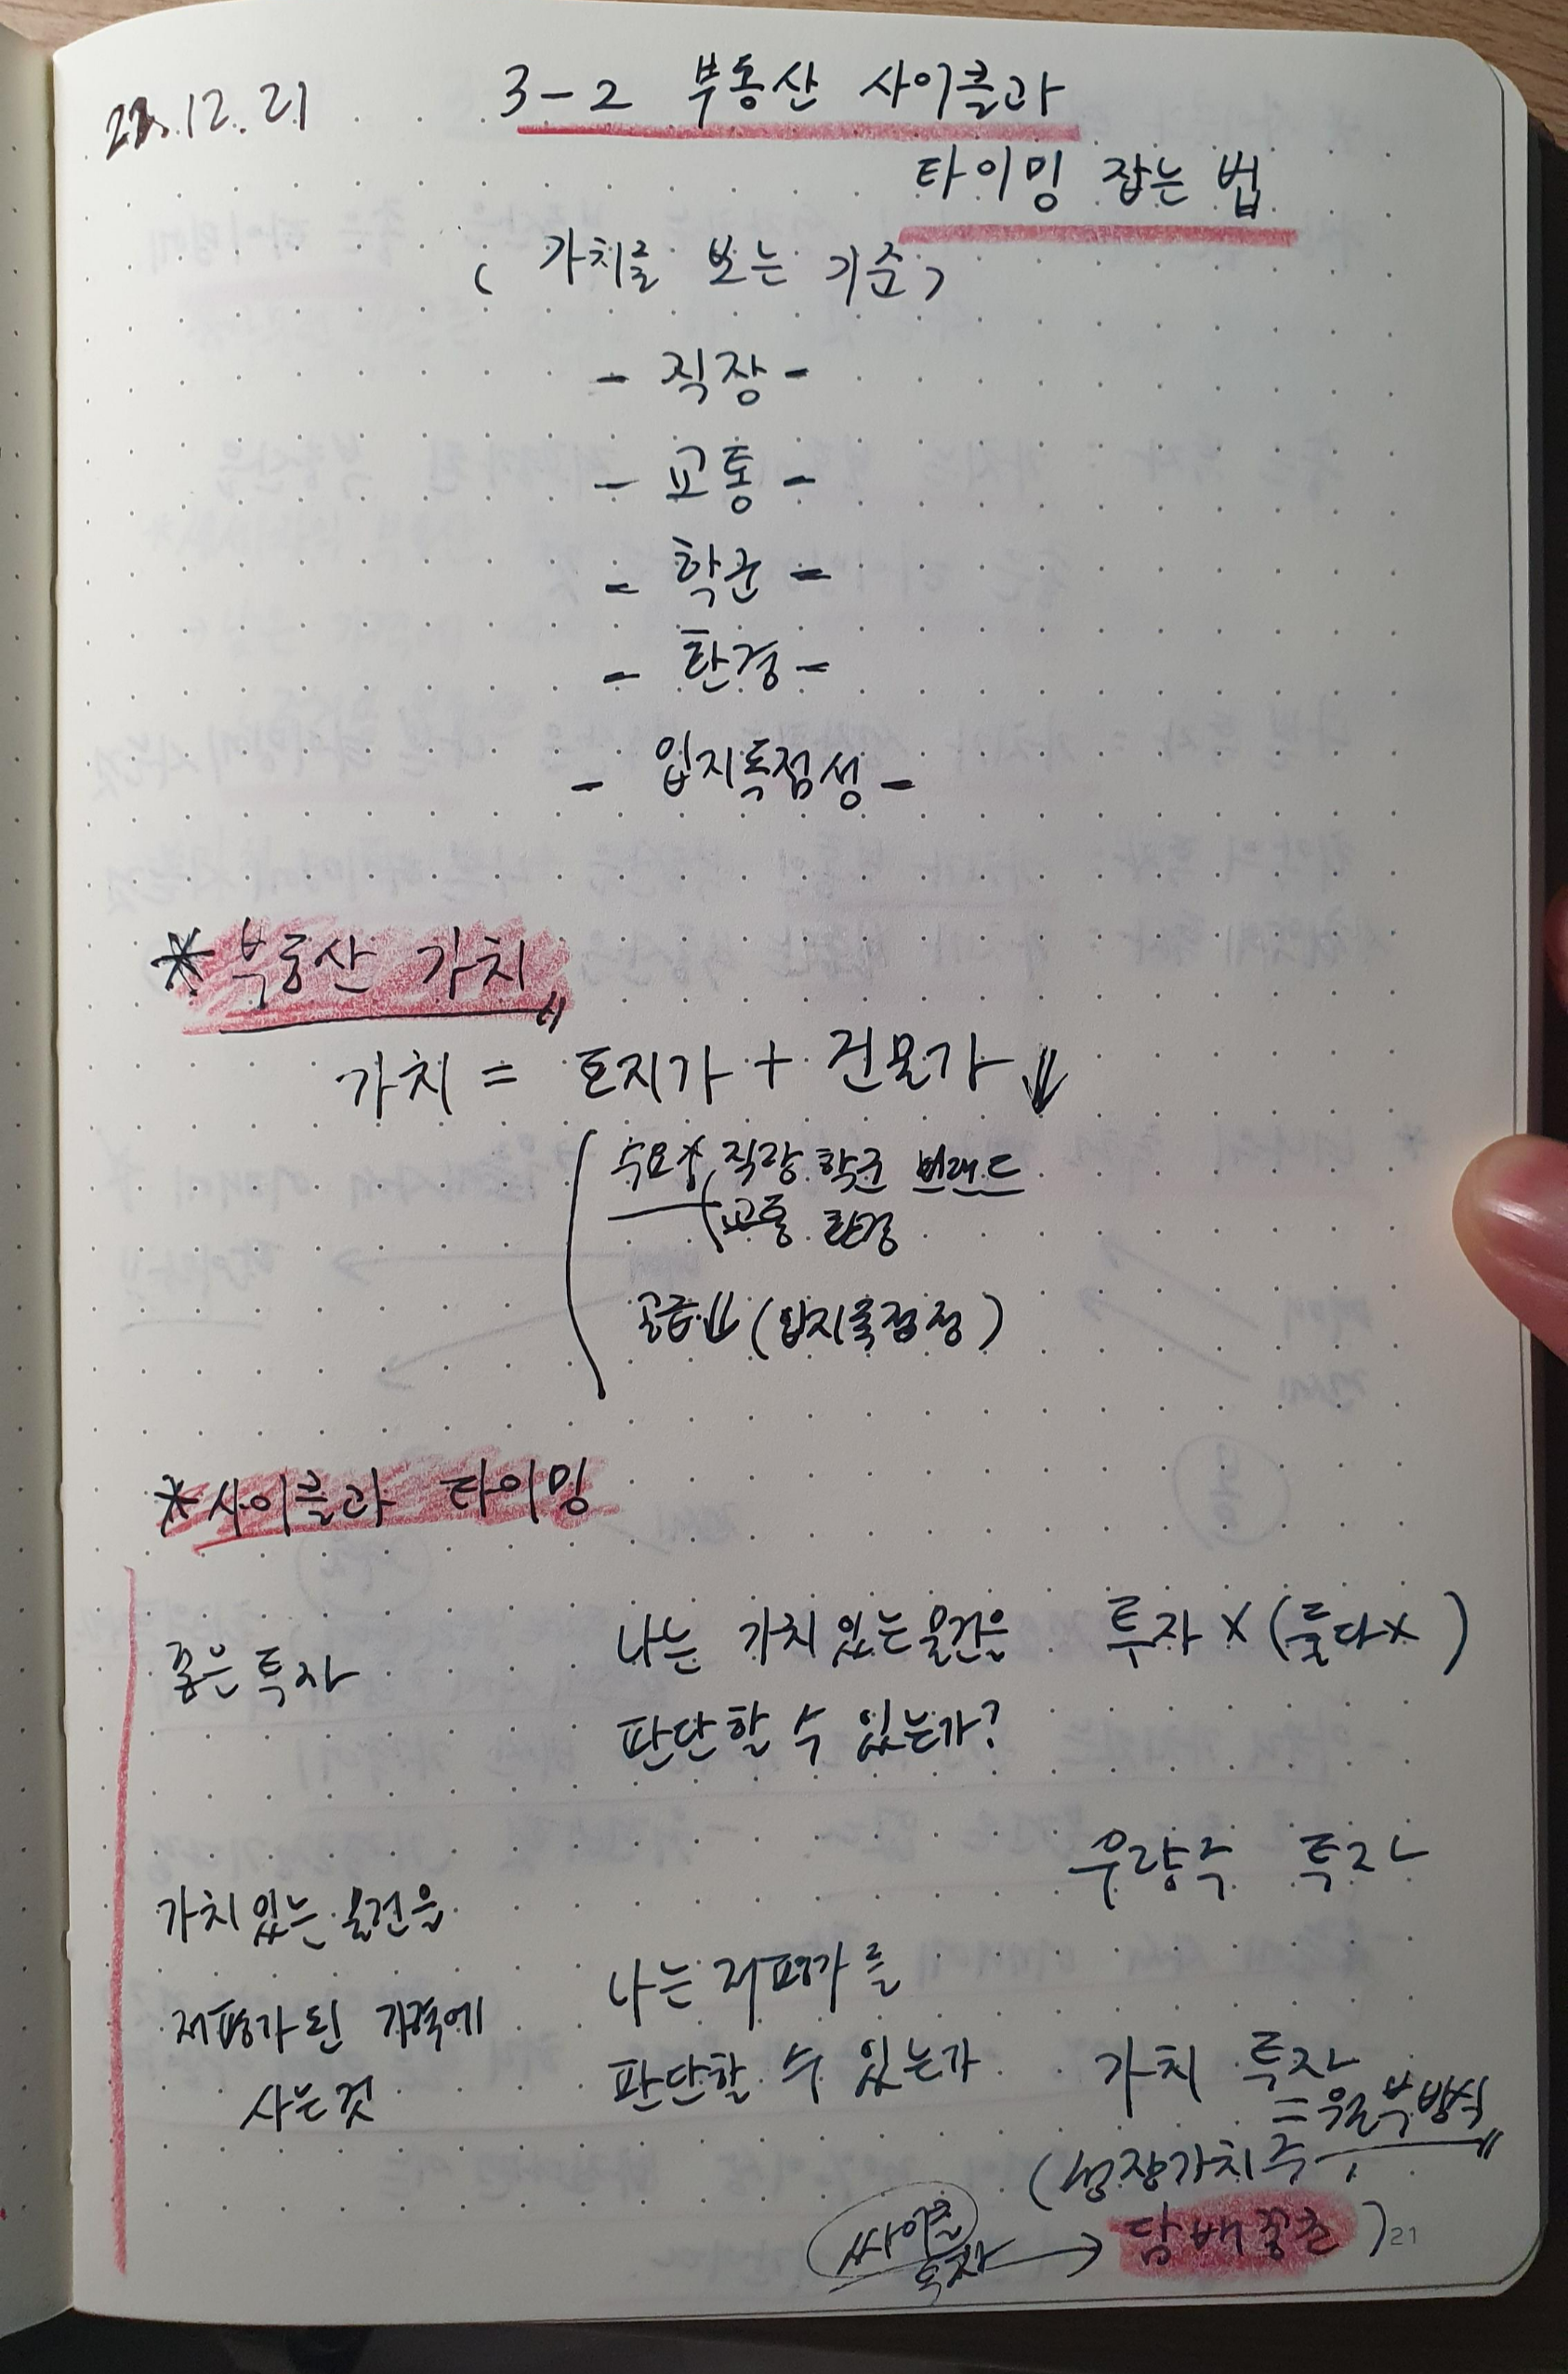 22.12.21
3-2 부동산 사이클과
타이밍 잡는 법
( 가치를 보는 기준)
- 직장 -
- 교통 -
- 학군 -
- 환경 -
- 입지독점성 -
*부동산 가치
가치 = 토지가 + 건물가 ↓
수요↑ 직장 학군 브랜드
교통 환경
공급↓ (입지독점성)
*사이클과 타이밍
좋은 투자
가치있는 물건을
저평가 된 가격에
사는것
나는 가치있는물건을
판단할 수 있는가?
나는 저평가를
판단할 수 있는가
투자 X (둘다X)
우량주 투자
가치 투자
=월부방식
(성장가치주
담배꽁초)
싸이클
투자 →
21